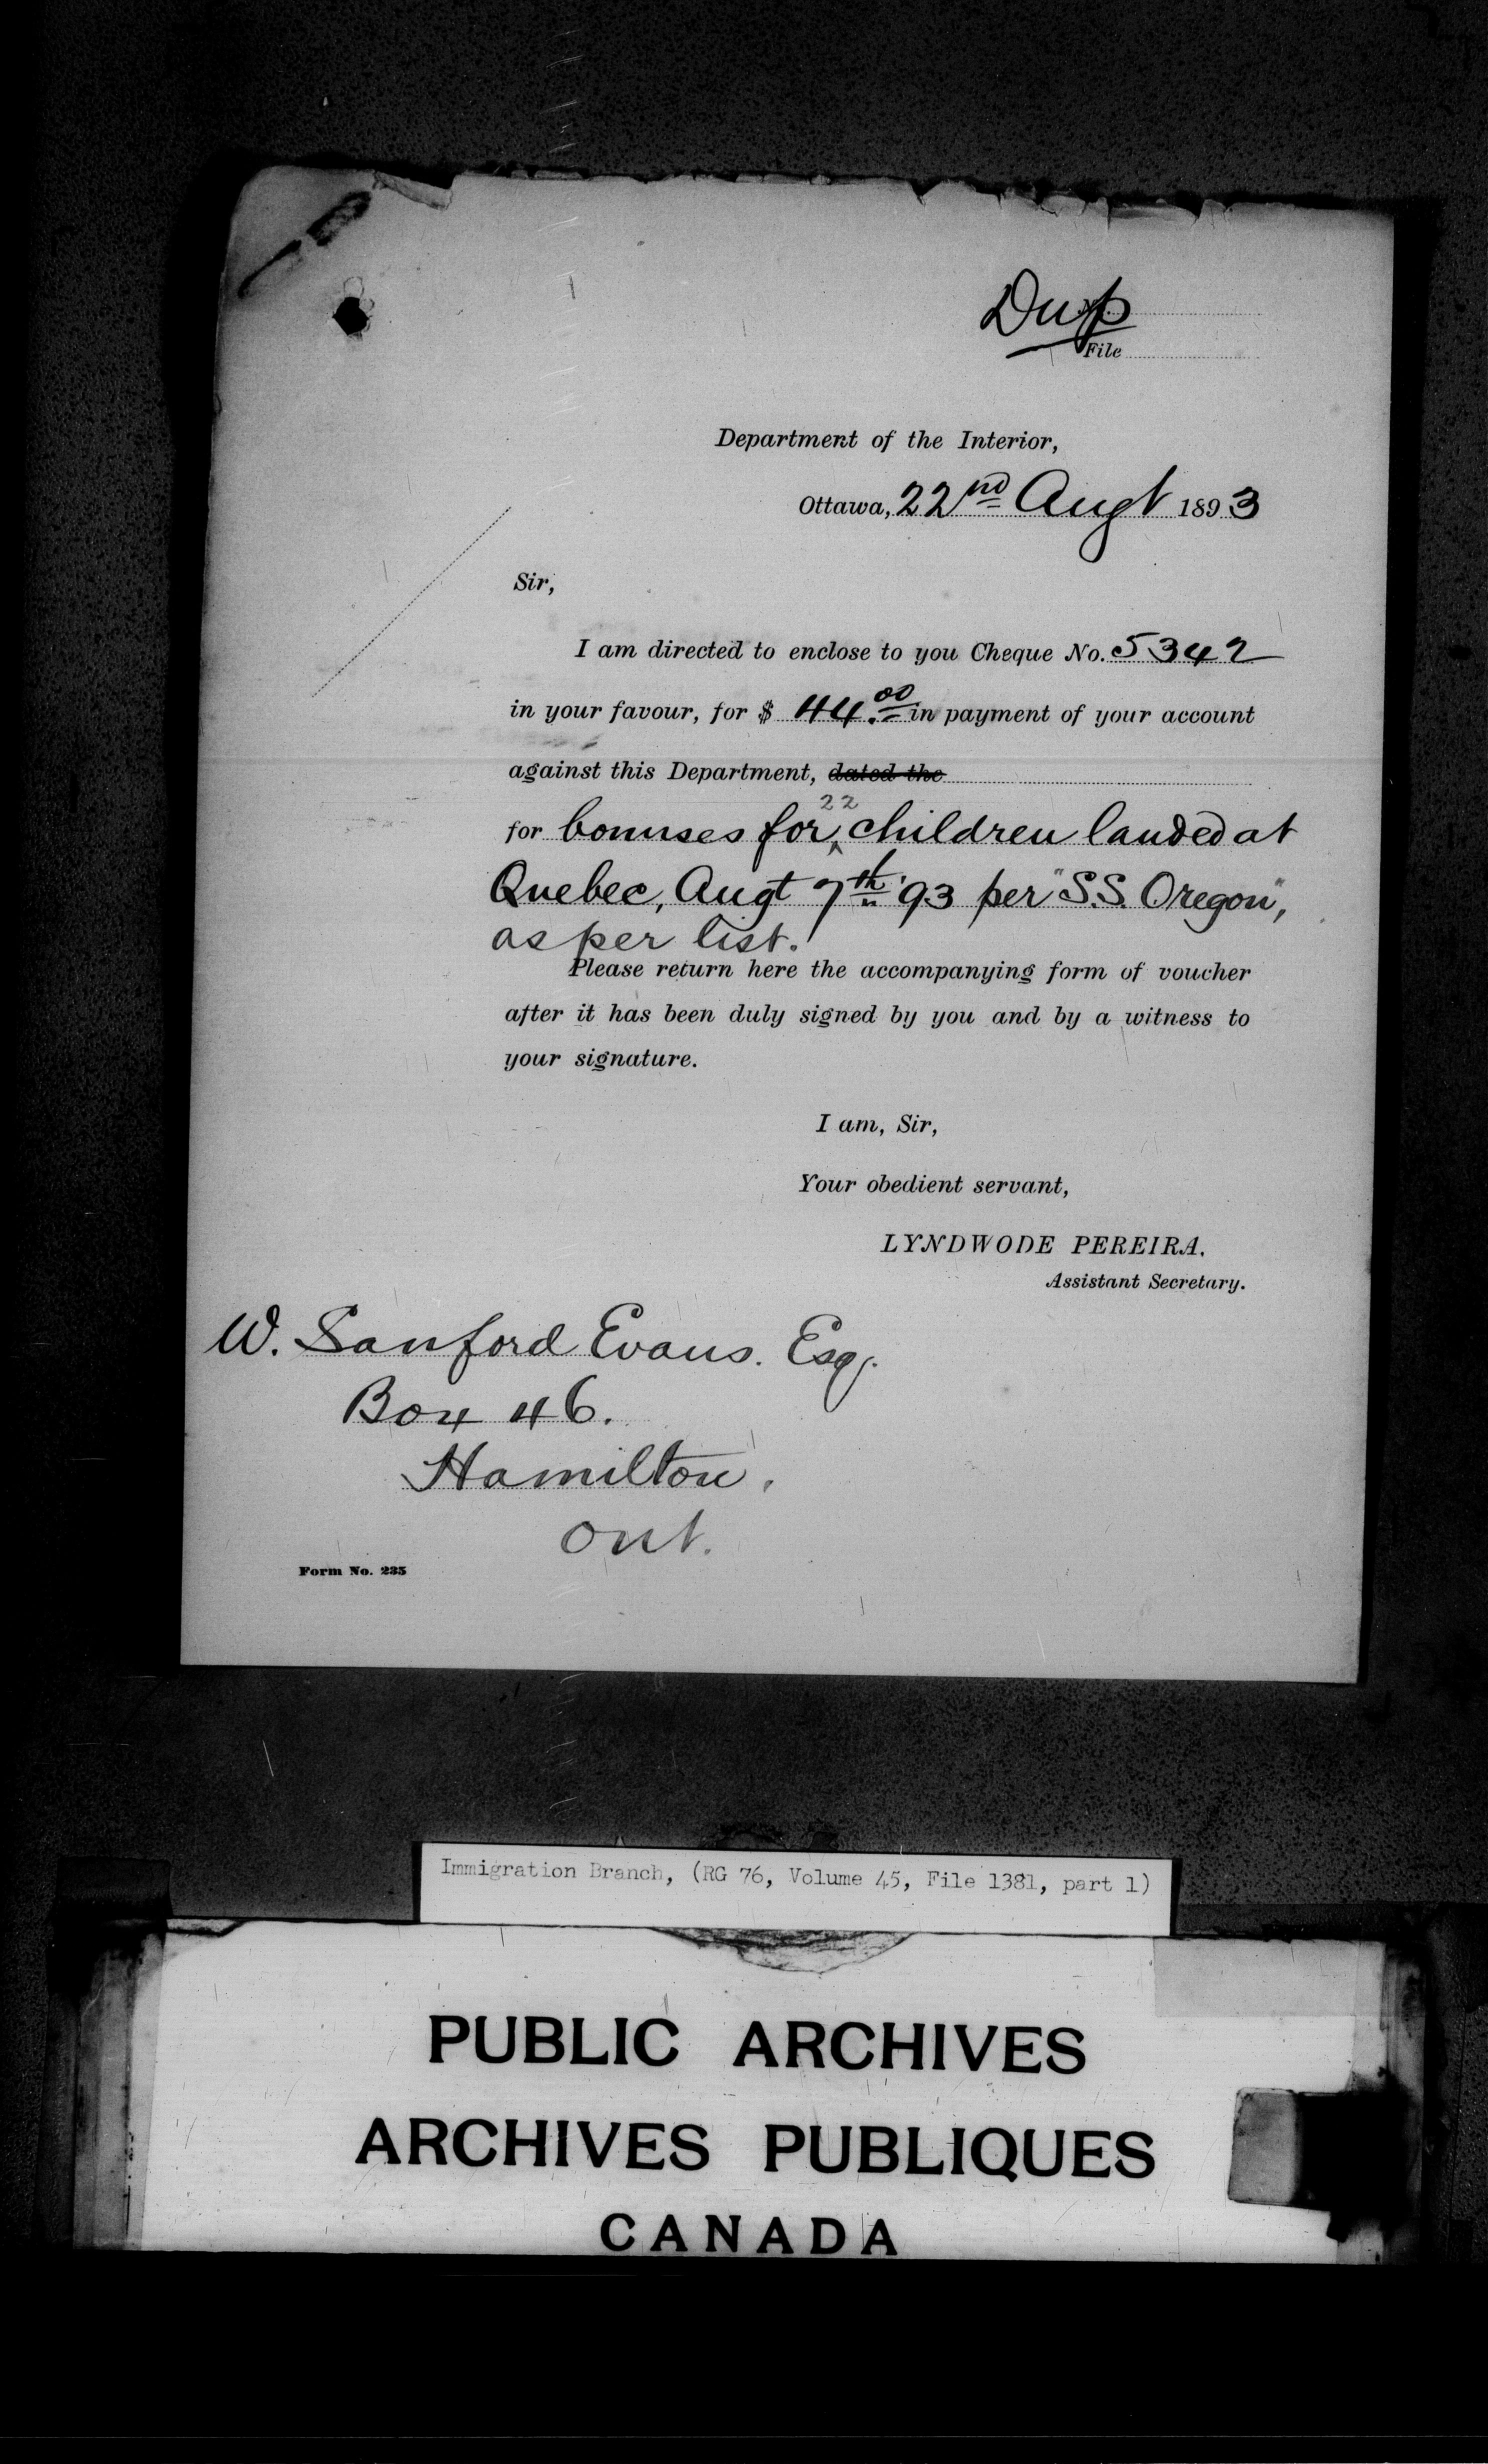 Dup
File
Department of the Interior,
Ottawa, 22nd Augt 1893
Sir,
I am directed to enclose to you Cheque No. 5342
in your favour, for $ 44.00 in payment of your account
against this Department, dated the
22
for bonuses for children landed at
Quebec, Augt 7th '93 per "S.S. Oregon",
as per list.
Please return here the accompanying form of voucher
after it has been duly signed by you and by a witness to
your signature.
I am, Sir,
Your obedient servant,
LYNDWODE PEREIRA.
Assistant Secretary.
W. Sanford Evans. Esq.
Box 46.
Hamilton,
Ont.
Form No. 235
Immigration Branch, (RG 76, Volume 45, File 1381, part 1)
PUBLIC ARCHIVES
ARCHIVES PUBLIQUES
CANADA